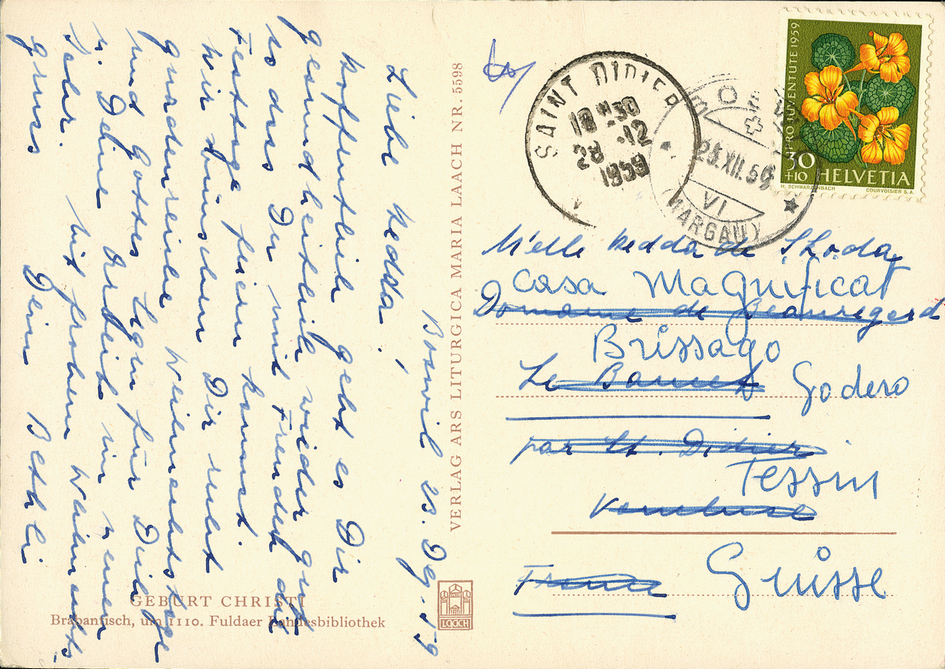 Boswil 23. Dez. 59
Liebe Hedda!
Hoffentlich geht es Dir
gesundheitlich wieder gut
so dass Du mit Freude das
Festtage feiern kannst.
Wir wünschen Dir recht
gnadenreiche Weihnachtstage
und Gottes Segen für Dich
u. Deine Arbeit im neuen
Jahr. Mit frohem Weihnachts-
gruss Dein Bethli
GEBURT CHRISTI
Brabantisch, um 1110. Fuldaer Landesbibliothek
VERLAG ARS LITURGICA MARIA LAACH NR. 5598
LAACH
SAINT DIDIER
18 H 30
28 -12
1959
BOSWIL
23.XII.59
VI
(AARGAU)
PRO JUVENTUTE 1959
30
+10 HELVETIA
H. SCHWARZENBACH COURVOISIER S.A.
M'elle Hedda de
Casa Magnificat
Domaine de Beauregard
Brissago
Le Baucet Godero
par St. Didier
Tessin
Vaucluse
France Suisse